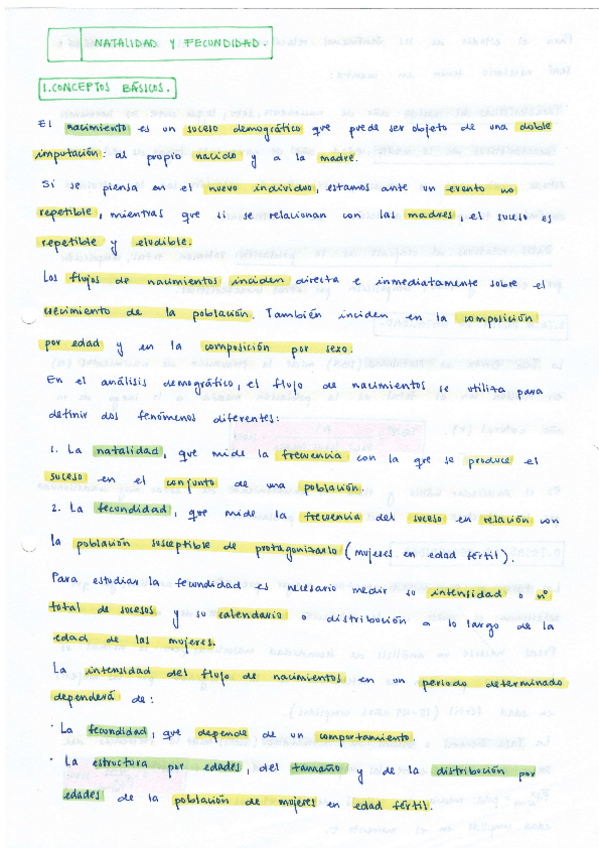 NATALIDAD Y FECUNDIDAD.
1. CONCEPTOS BÁSICOS.
El nacimiento es un suceso demográfico que puede ser objeto de una doble
imputación: al propio nacido y a la madre.
Si se piensa en el nuevo individuo, estamos ante un evento no
repetible, mientras que si se relacionan con las madres, el suceso es
repetible y eludible.
Los flujos de nacimientos inciden directa e inmediatamente sobre el
crecimiento de la población. También inciden en la composición
por edad y en la composición por sexo.
En el análisis demográfico, el flujo de nacimientos se utiliza para
definir dos fenómenos diferentes:
1. La natalidad, que mide la frecuencia con la que se produce el
suceso en el conjunto de una población.
2. La fecundidad, que mide la frecuencia del suceso en relación con
la población susceptible de protagonizarlo (mujeres en edad fértil).
Para estudiar la fecundidad es necesario medir su intensidad o nº
total de sucesos y su calendario o distribución a lo largo de la
edad de las mujeres.
La intensidad del flujo de nacimientos en un periodo determinado
dependerá de:
· La fecundidad, que depende de un comportamiento.
· La estructura por edades, del tamaño y de la distribución por
edades de la población de mujeres en edad fértil.